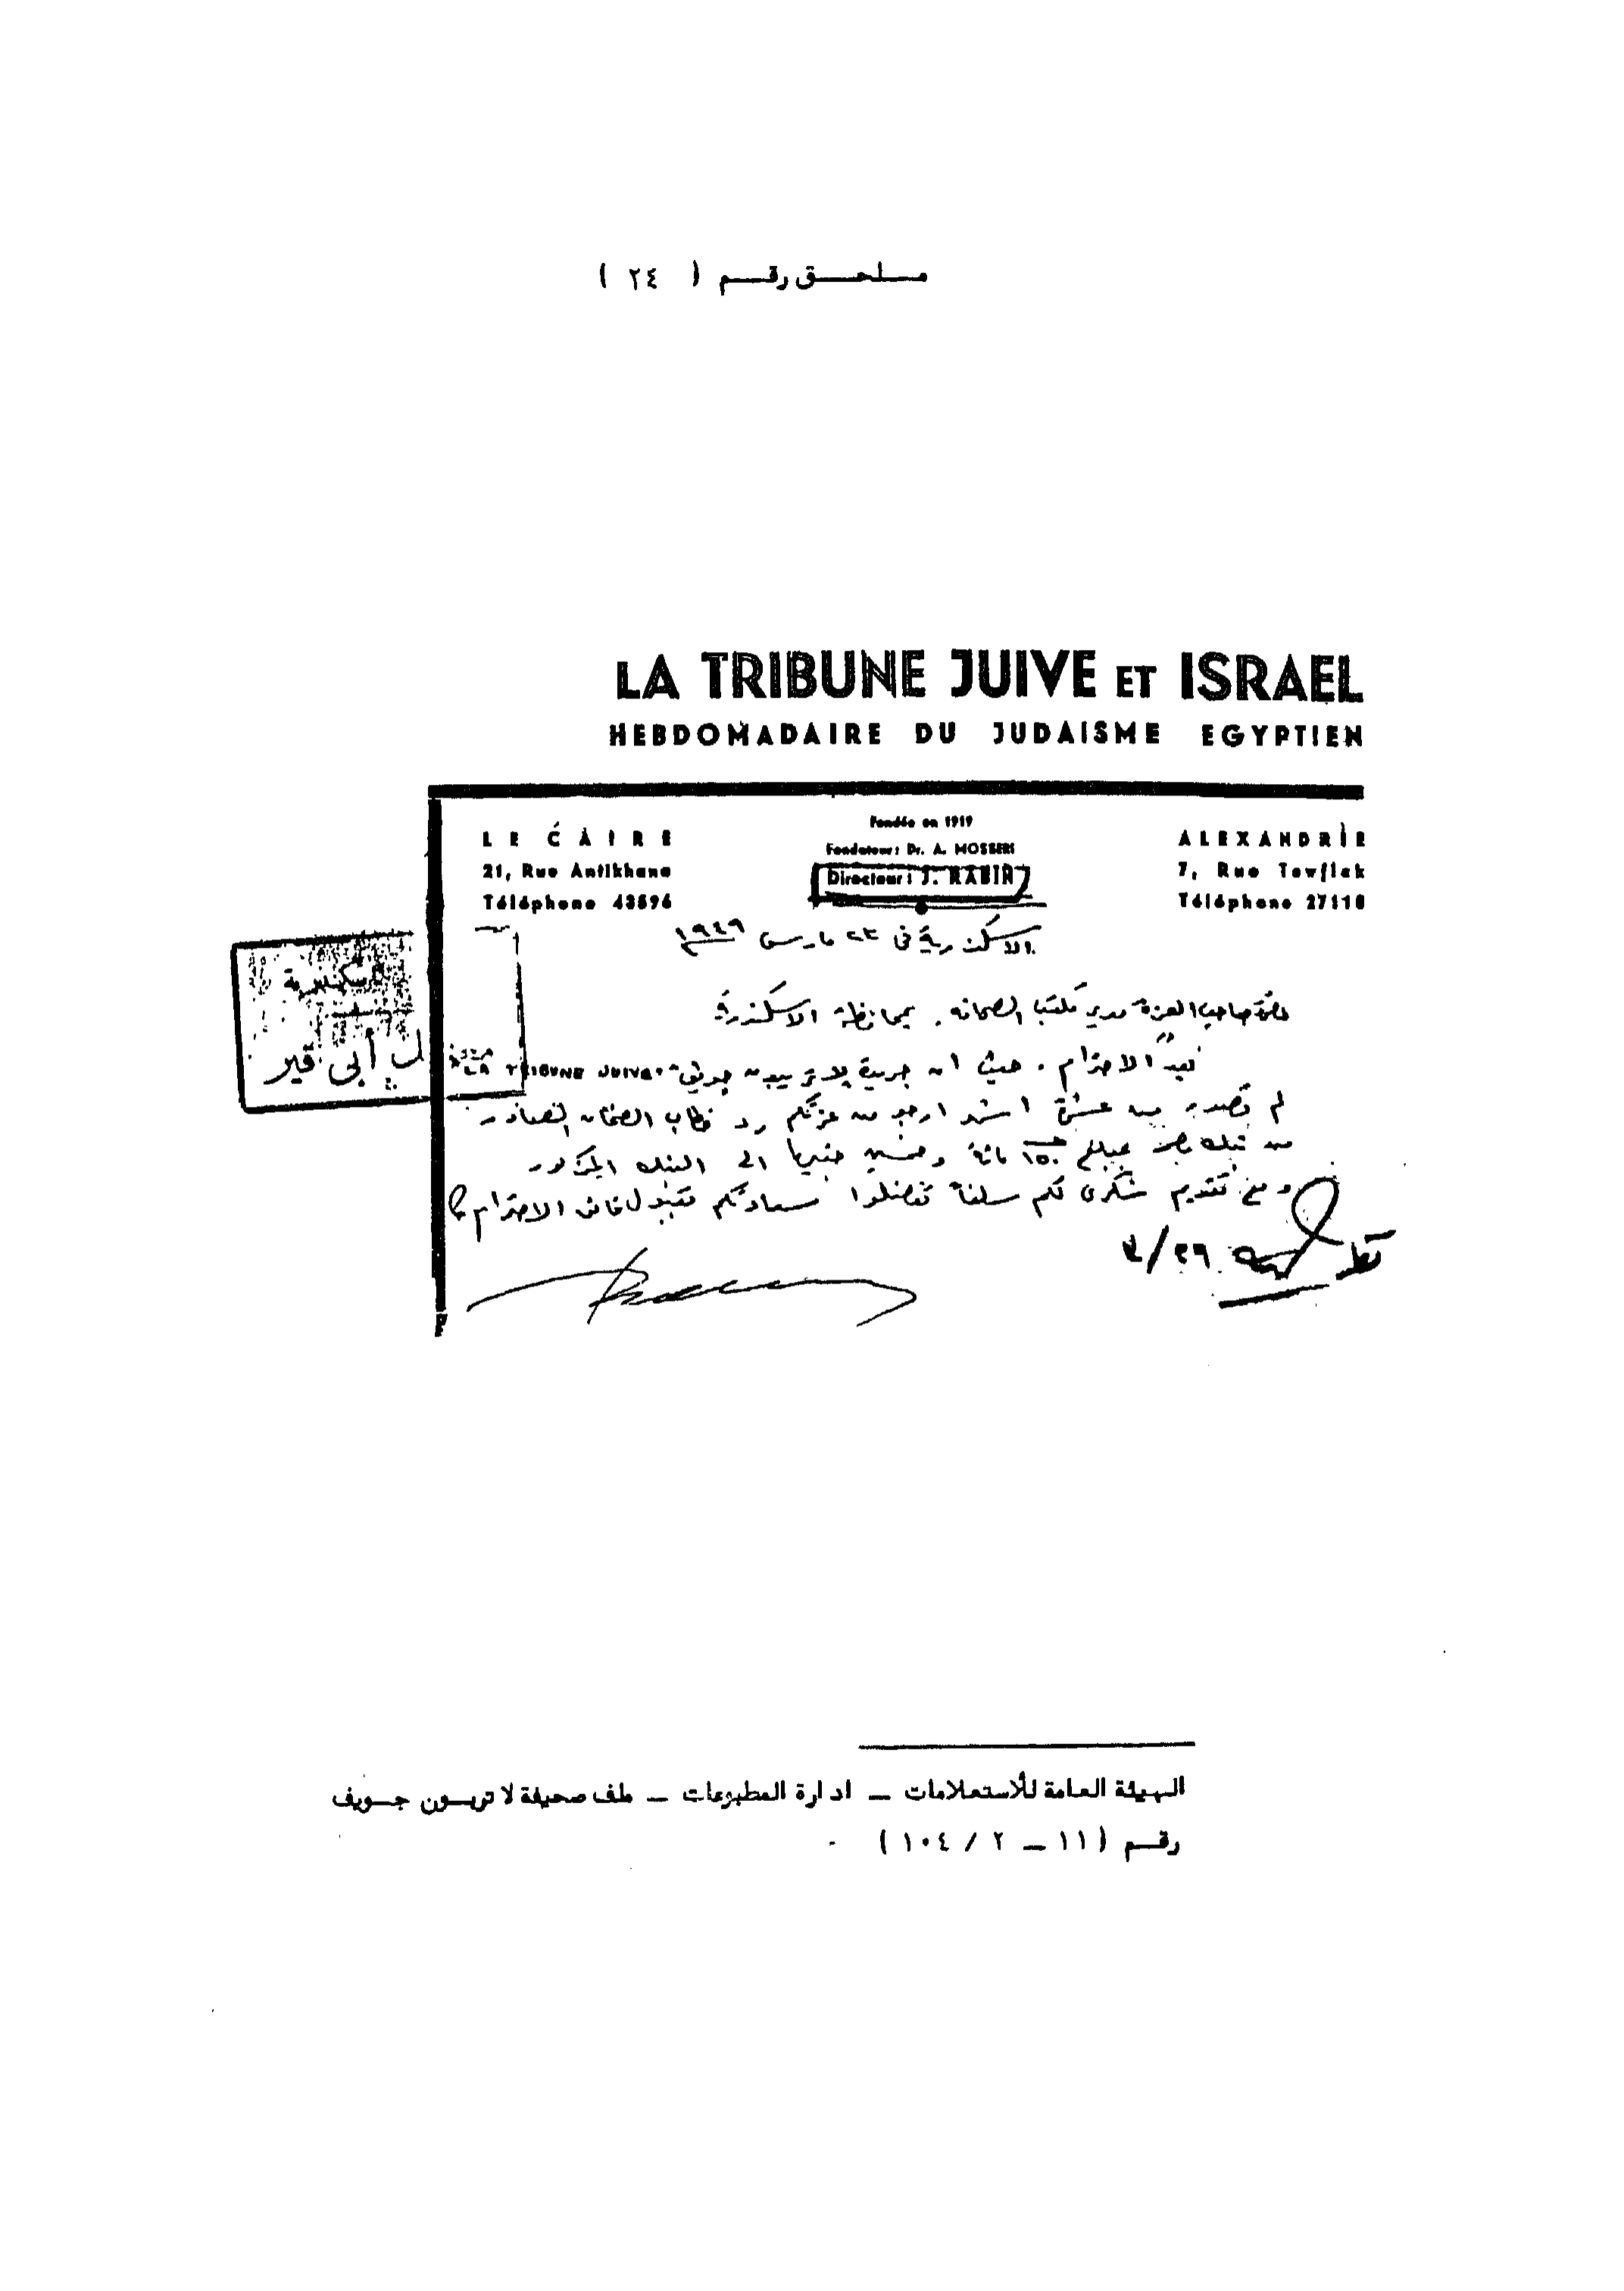 ملحق رقم ( ٢٤ )
LA TRIBUNE JUIVE ET ISRAEL
HEBDOMADAIRE DU JUDAISME EGYPTIEN
LE CAIRE
21, Rue Antikhana
Téléphone 43596
Fondée en 1919
Fondateur: Dr. A. MOSSERI
Directeur: J. RABIN
ALEXANDRIE
7, Rue Tewfick
Téléphone 27118
الاسكندرية في ٢٣ مارس ١٩٤٩
حضرة صاحب العزة مدير مكتب الصحافة بمحافظة الاسكندرية
بعد الاحترام . حيث ان جريدة لاتريبيون جويف "LA TRIBUNE JUIVE"
لم تصدر من عشرة اشهر ارجو من عزتكم رد خطاب الضمان الصادر
من بنك بمبلغ ١٥٠ مائة وخمسين جنيها الى البنك المذكور
ومع تقديم شكرى لكم سلفاً تفضلوا سعادتكم بقبول فائق الاحترام
٢٦/٣
أبى قير
الهيئة العامة للأستعلامات – ادارة المطبوعات – ملف صحيفة لا تربون جويف
رقم (١١ – ٢ / ١٠٤)